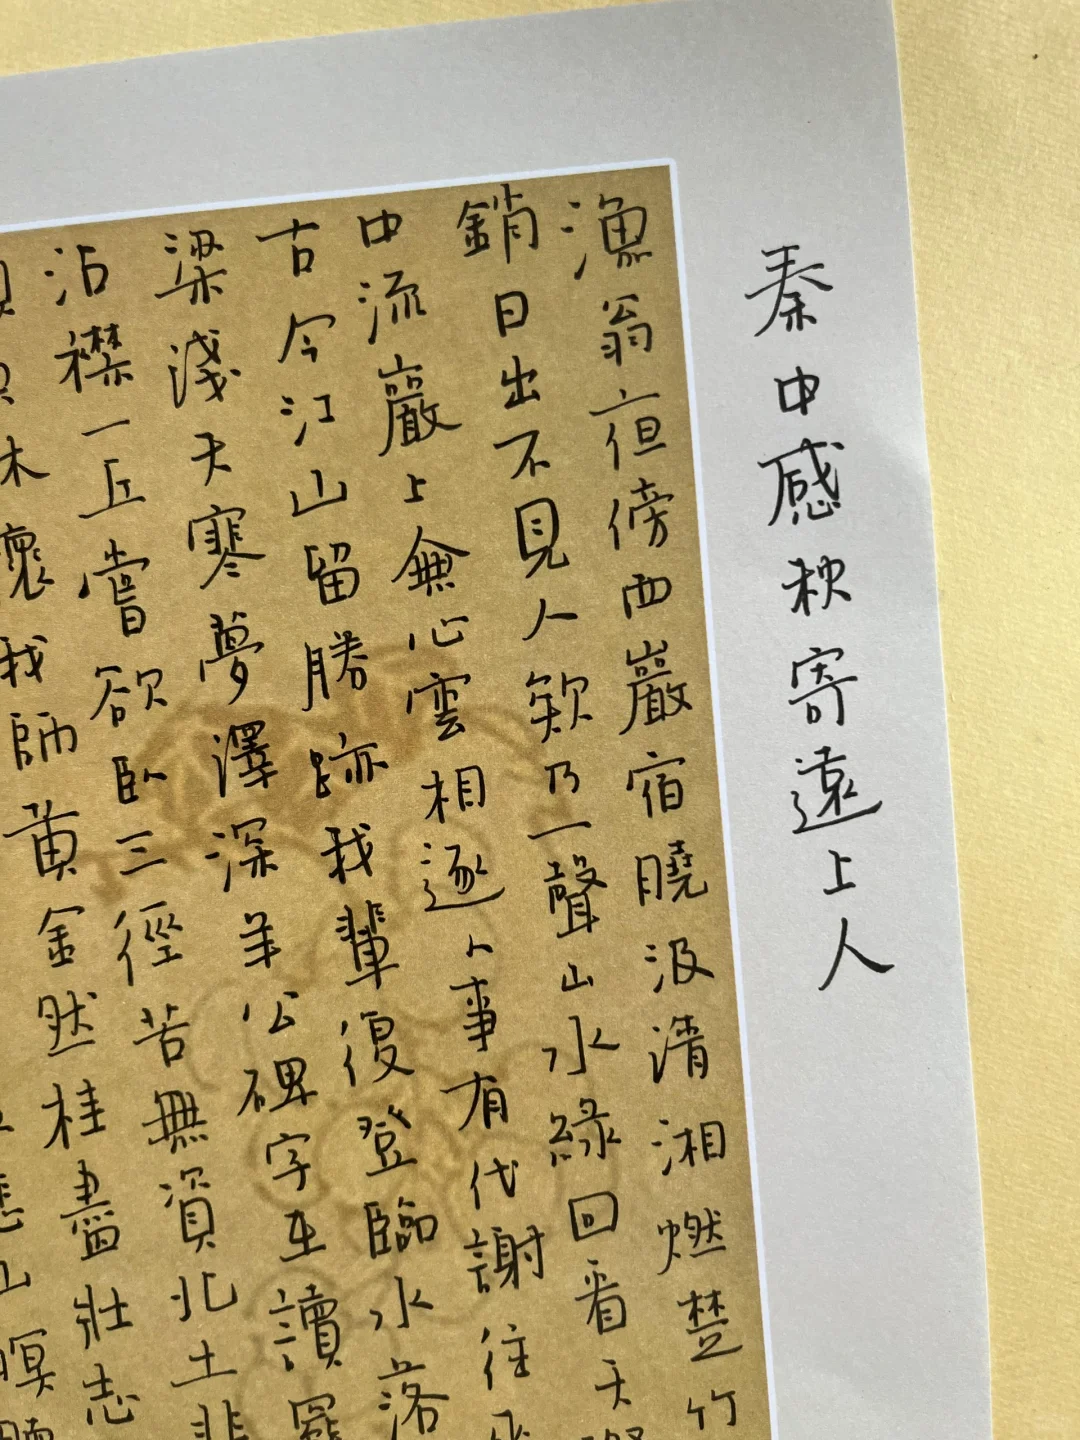 秦中感秋寄遠上人
漁翁亱傍西巖宿曉汲清湘燃楚竹
銷日出不見人欸乃一聲山水綠回看天
中流巖上無心雲相逐人事有代謝往
古今江山留勝跡我輩復登臨水落
梁淺天寒夢澤深羊公碑字在讀罷
沾襟一丘嘗欲臥三徑苦無資北土非
我師黃金然桂盡壯志